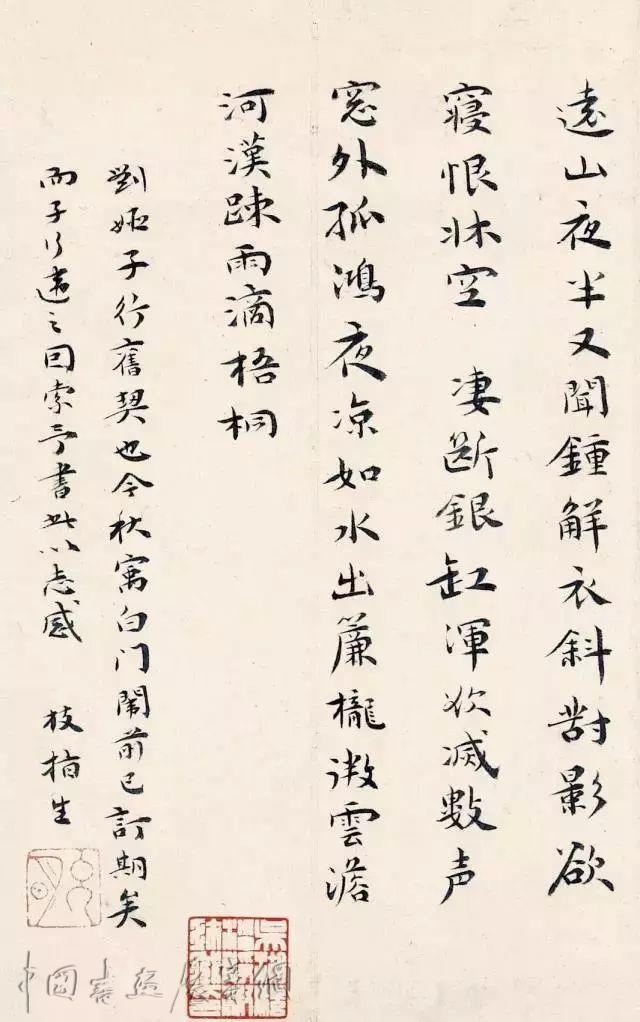 遠山夜半又聞鍾解衣斜對影欲
寢恨牀空 凄斷銀缸渾欲滅數声
窓外孤鴻夜凉如水出簾櫳微雲澹
河漢踈雨滴梧桐
劉姬子行舊契也今秋寓白门闈前已訂期矣
而子行違之回索予書此以志感 枝指生
中國書法